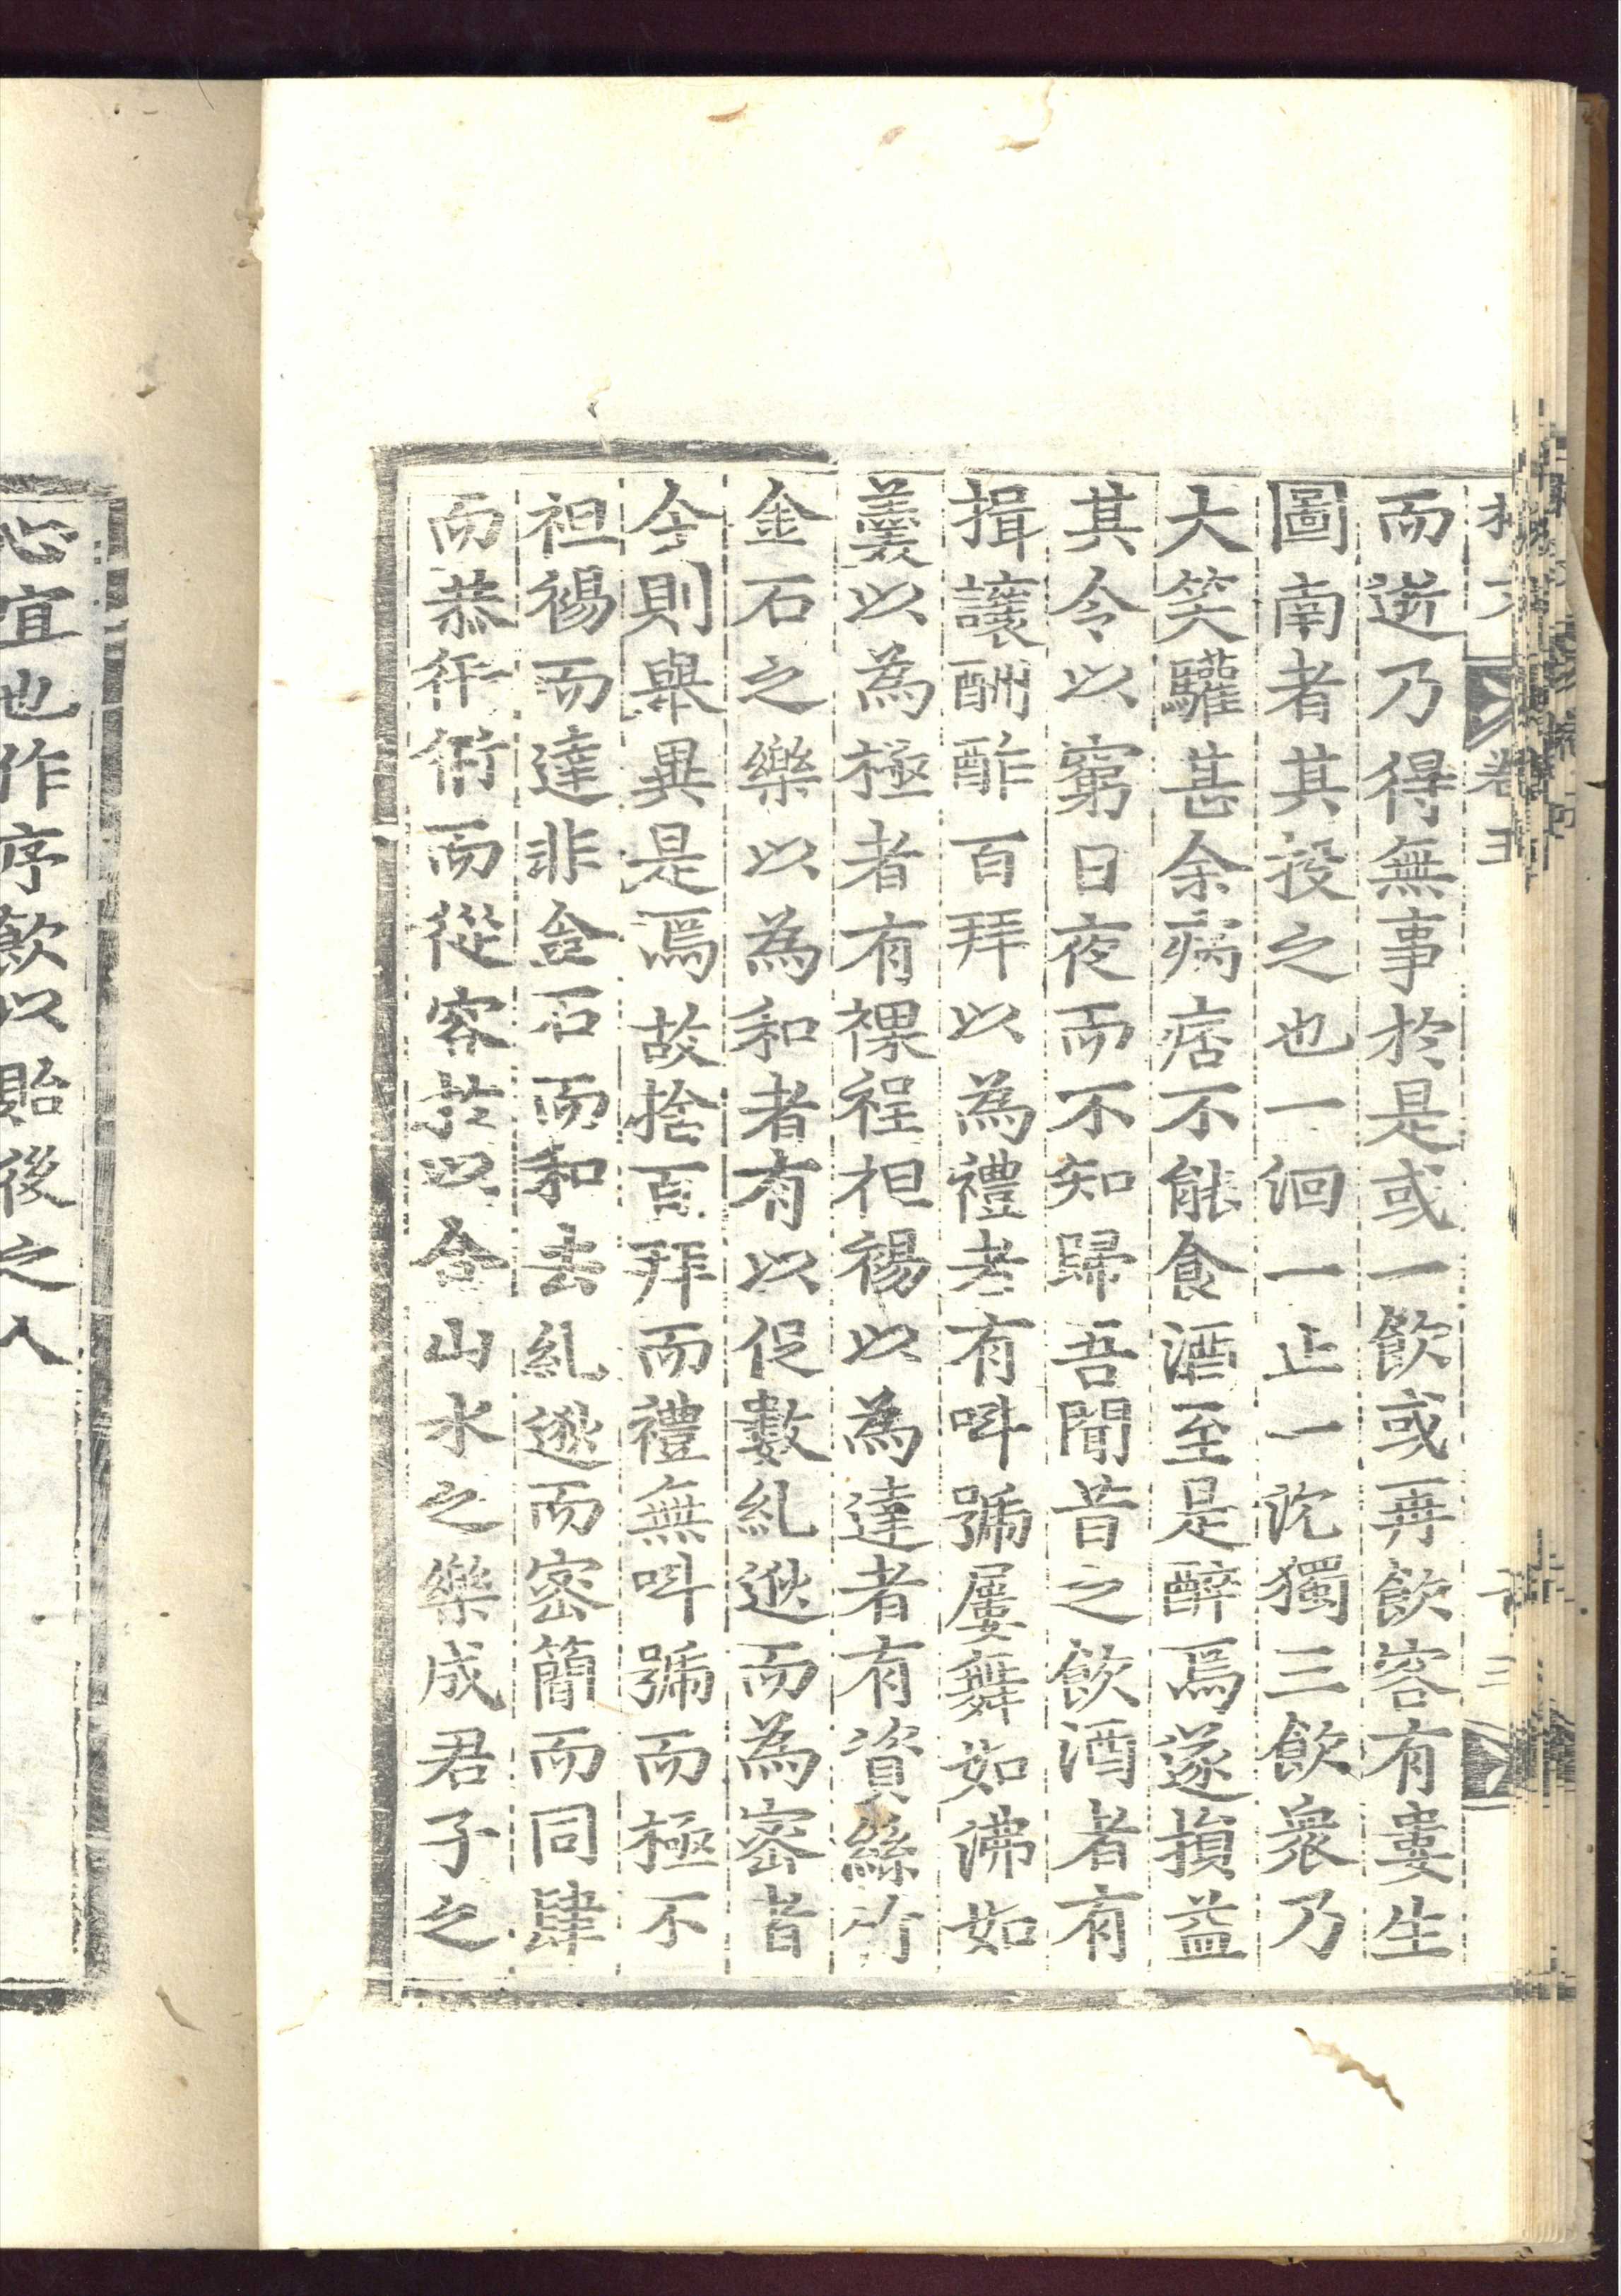 卷五
而逬乃得無事於是或一飲或再飲容有婁生
圖南者其投之也一洄一止一沉獨三飲衆乃
大笑驩甚余病痞不能食酒至是醉焉遂損益
其令以窮日夜而不知歸吾聞昔之飲酒者有
揖讓酬酢百拜以為禮者有叫號屢舞如沸如
羹以為極者有裸裎袒裼以為達者有資絲竹
金石之樂以為和者有以促數糺逖而為密者
今則舉異是焉故捨百拜而禮無叫號而極不
袒裼而達非金石而和去糺逖而密簡而同肆
而恭衎衎而從容於以合山水之樂成君子之
心宜也作序飲以貽後之人